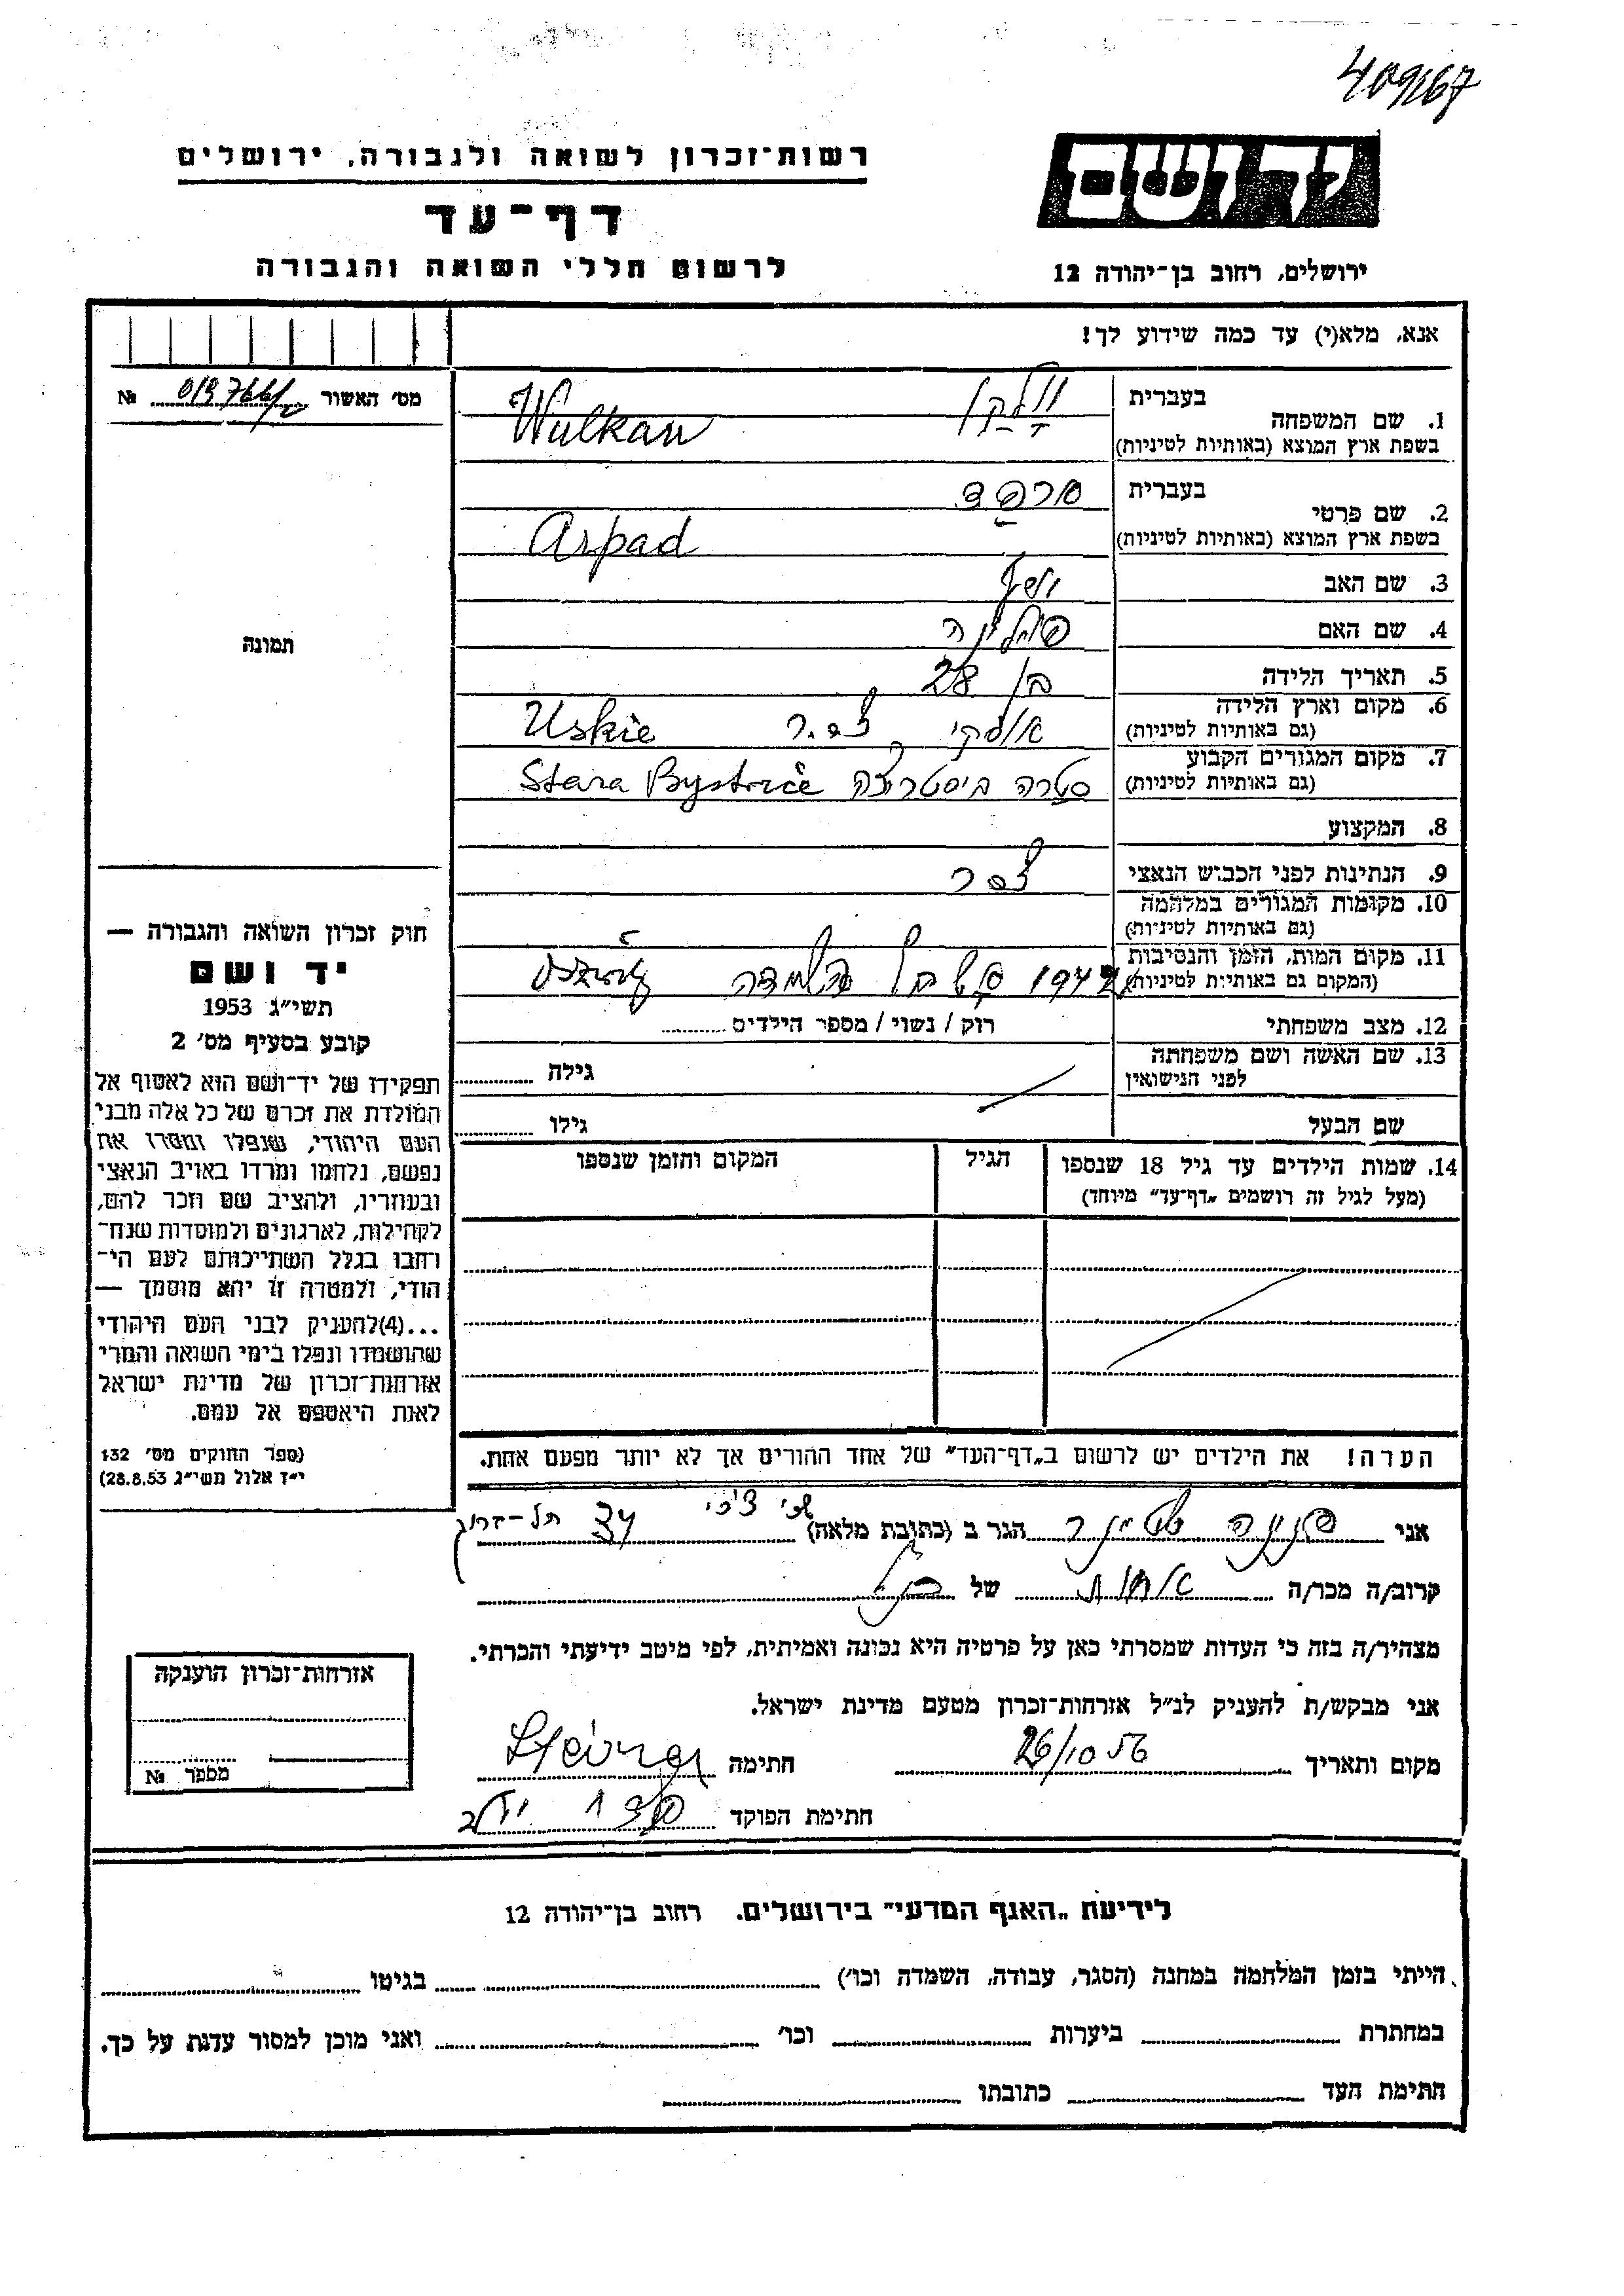 409167
יד ושם
רשות-זכרון לשואה ולגבורה, ירושלים
דף-עד
לרשום חללי השואה והגבורה
ירושלים, רחוב בן-יהודה 12
אנא, מלא(י) עד כמה שידוע לך!
מס׳ האשור №
1. שם המשפחה
בעברית
בשפת ארץ המוצא (באותיות לטיניות) Wulkan
2. שם פרטי
בעברית ארפד
בשפת ארץ המוצא (באותיות לטיניות) Arpad
3. שם האב
4. שם האם
5. תאריך הלידה בן 28
6. מקום וארץ הלידה צ.ס.ר Uskie
(גם באותיות לטיניות)
7. מקום המגורים הקבוע סטרה ביסטריצה Stara Bystrice
(גם באותיות לטיניות)
8. המקצוע
9. הנתינות לפני הכבוש הנאצי צ.ס.ר
10. מקומות המגורים במלחמה
(גם באותיות לטיניות)
11. מקום המות, הזמן והנסיבות
(המקום גם באותיות לטיניות)
12. מצב משפחתי רוק / נשוי / מספר הילדים
13. שם האשה ושם משפחתה
לפני הנישואין גילה
שם הבעל גילו
14. שמות הילדים עד גיל 18 שנספו הגיל המקום והזמן שנספו
(מעל לגיל זה רושמים „דף-עד״ מיוחד)
הערה! את הילדים יש לרשום ב„דף-העד״ של אחד ההורים אך לא יותר מפעם אחת.
תמונה
חוק זכרון השואה והגבורה —
יד ושם
תשי״ג 1953
קובע בסעיף מס׳ 2
תפקידו של יד-ושם הוא לאסוף אל
המולדת את זכרם של כל אלה מבני
העם היהודי, שנפלו ומסרו את
נפשם, נלחמו ומרדו באויב הנאצי
ובעוזריו, ולהציב שם וזכר להם,
לקהילות, לארגונים ולמוסדות שנח-
רבו בגלל השתייכותם לעם הי-
הודי, ולמטרה זו יהא מוסמך —
...(4)להעניק לבני העם היהודי
שהושמדו ונפלו בימי השואה והמרי
אזרחות-זכרון של מדינת ישראל
לאות היאספם אל עמם.
(ספר החוקים מס׳ 132
י״ז אלול תשי״ג 28.8.53)
אני שטיינר הגר ב (כתובת מלאה) 34
קרוב/ה מכר/ה אחות של
מצהיר/ה בזה כי העדות שמסרתי כאן על פרטיה היא נכונה ואמיתית, לפי מיטב ידיעתי והכרתי.
אני מבקש/ת להעניק לנ״ל אזרחות-זכרון מטעם מדינת ישראל.
מקום ותאריך 26/10 56 חתימה
חתימת הפוקד
אזרחות-זכרון הוענקה
מספר №
לידיעת „האגף המדעי״ בירושלים. רחוב בן-יהודה 12
הייתי בזמן המלחמה במחנה (הסגר, עבודה, השמדה וכו׳) בגיטו
במחתרת ביערות וכו׳ ואני מוכן למסור עדות על כך.
חתימת העד כתובתו